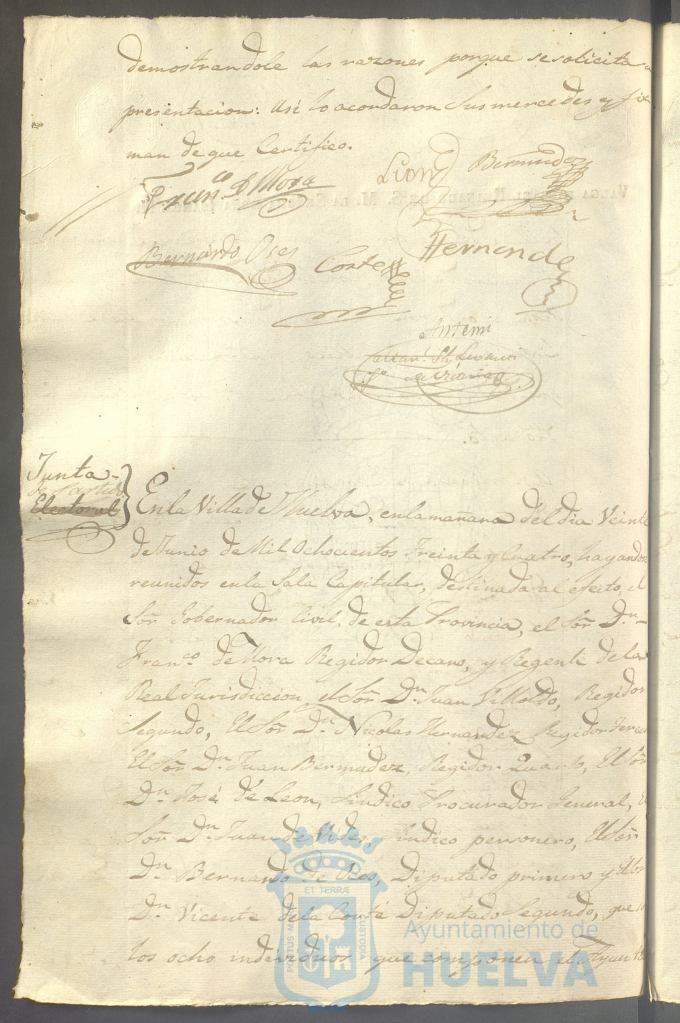 demostrandole las razones porque se solicita
presentacion: Asi lo acordaron Sus mercedes y fir
man de que Certifico.
Fran.co D Mora
Leon Bermudez
Bernardo Oses Corte Hernande
Antemi
Junta
Electoral
En la Villa de Huelva, en la mañana del dia Veinte
de Junio de Mil Ochocientos Treinta y Cuatro, hayandose
reunidos en la Sala Capitular, destinada al efecto, el
Sor. Gobernador Civil de esta Provincia, el Sor. Dn.
Fran.co de Mora Regidor Decano, y Regente de la
Real Jurisdiccion, el Sor. Dn. Juan Regidor
Segundo, El Sor. Dn. Nicolas Hernandez Regidor Terce
El Sor. Dn. Juan Bermudez, Regidor Quarto, El Sor.
Dn. José de Leon, Sindico Procurador General, el
Sor. Dn. Juan de indico personero, El Sor.
Dn. Bernardo de Oses, Diputado primero y el Sor
Dn. Vicente de la Corte Diputado Segundo, que
los ocho individuos que componen el Ayunta
ET TERRÆ
PORTUS MARIS
CUSTODIA
Ayuntamiento de
HUELVA